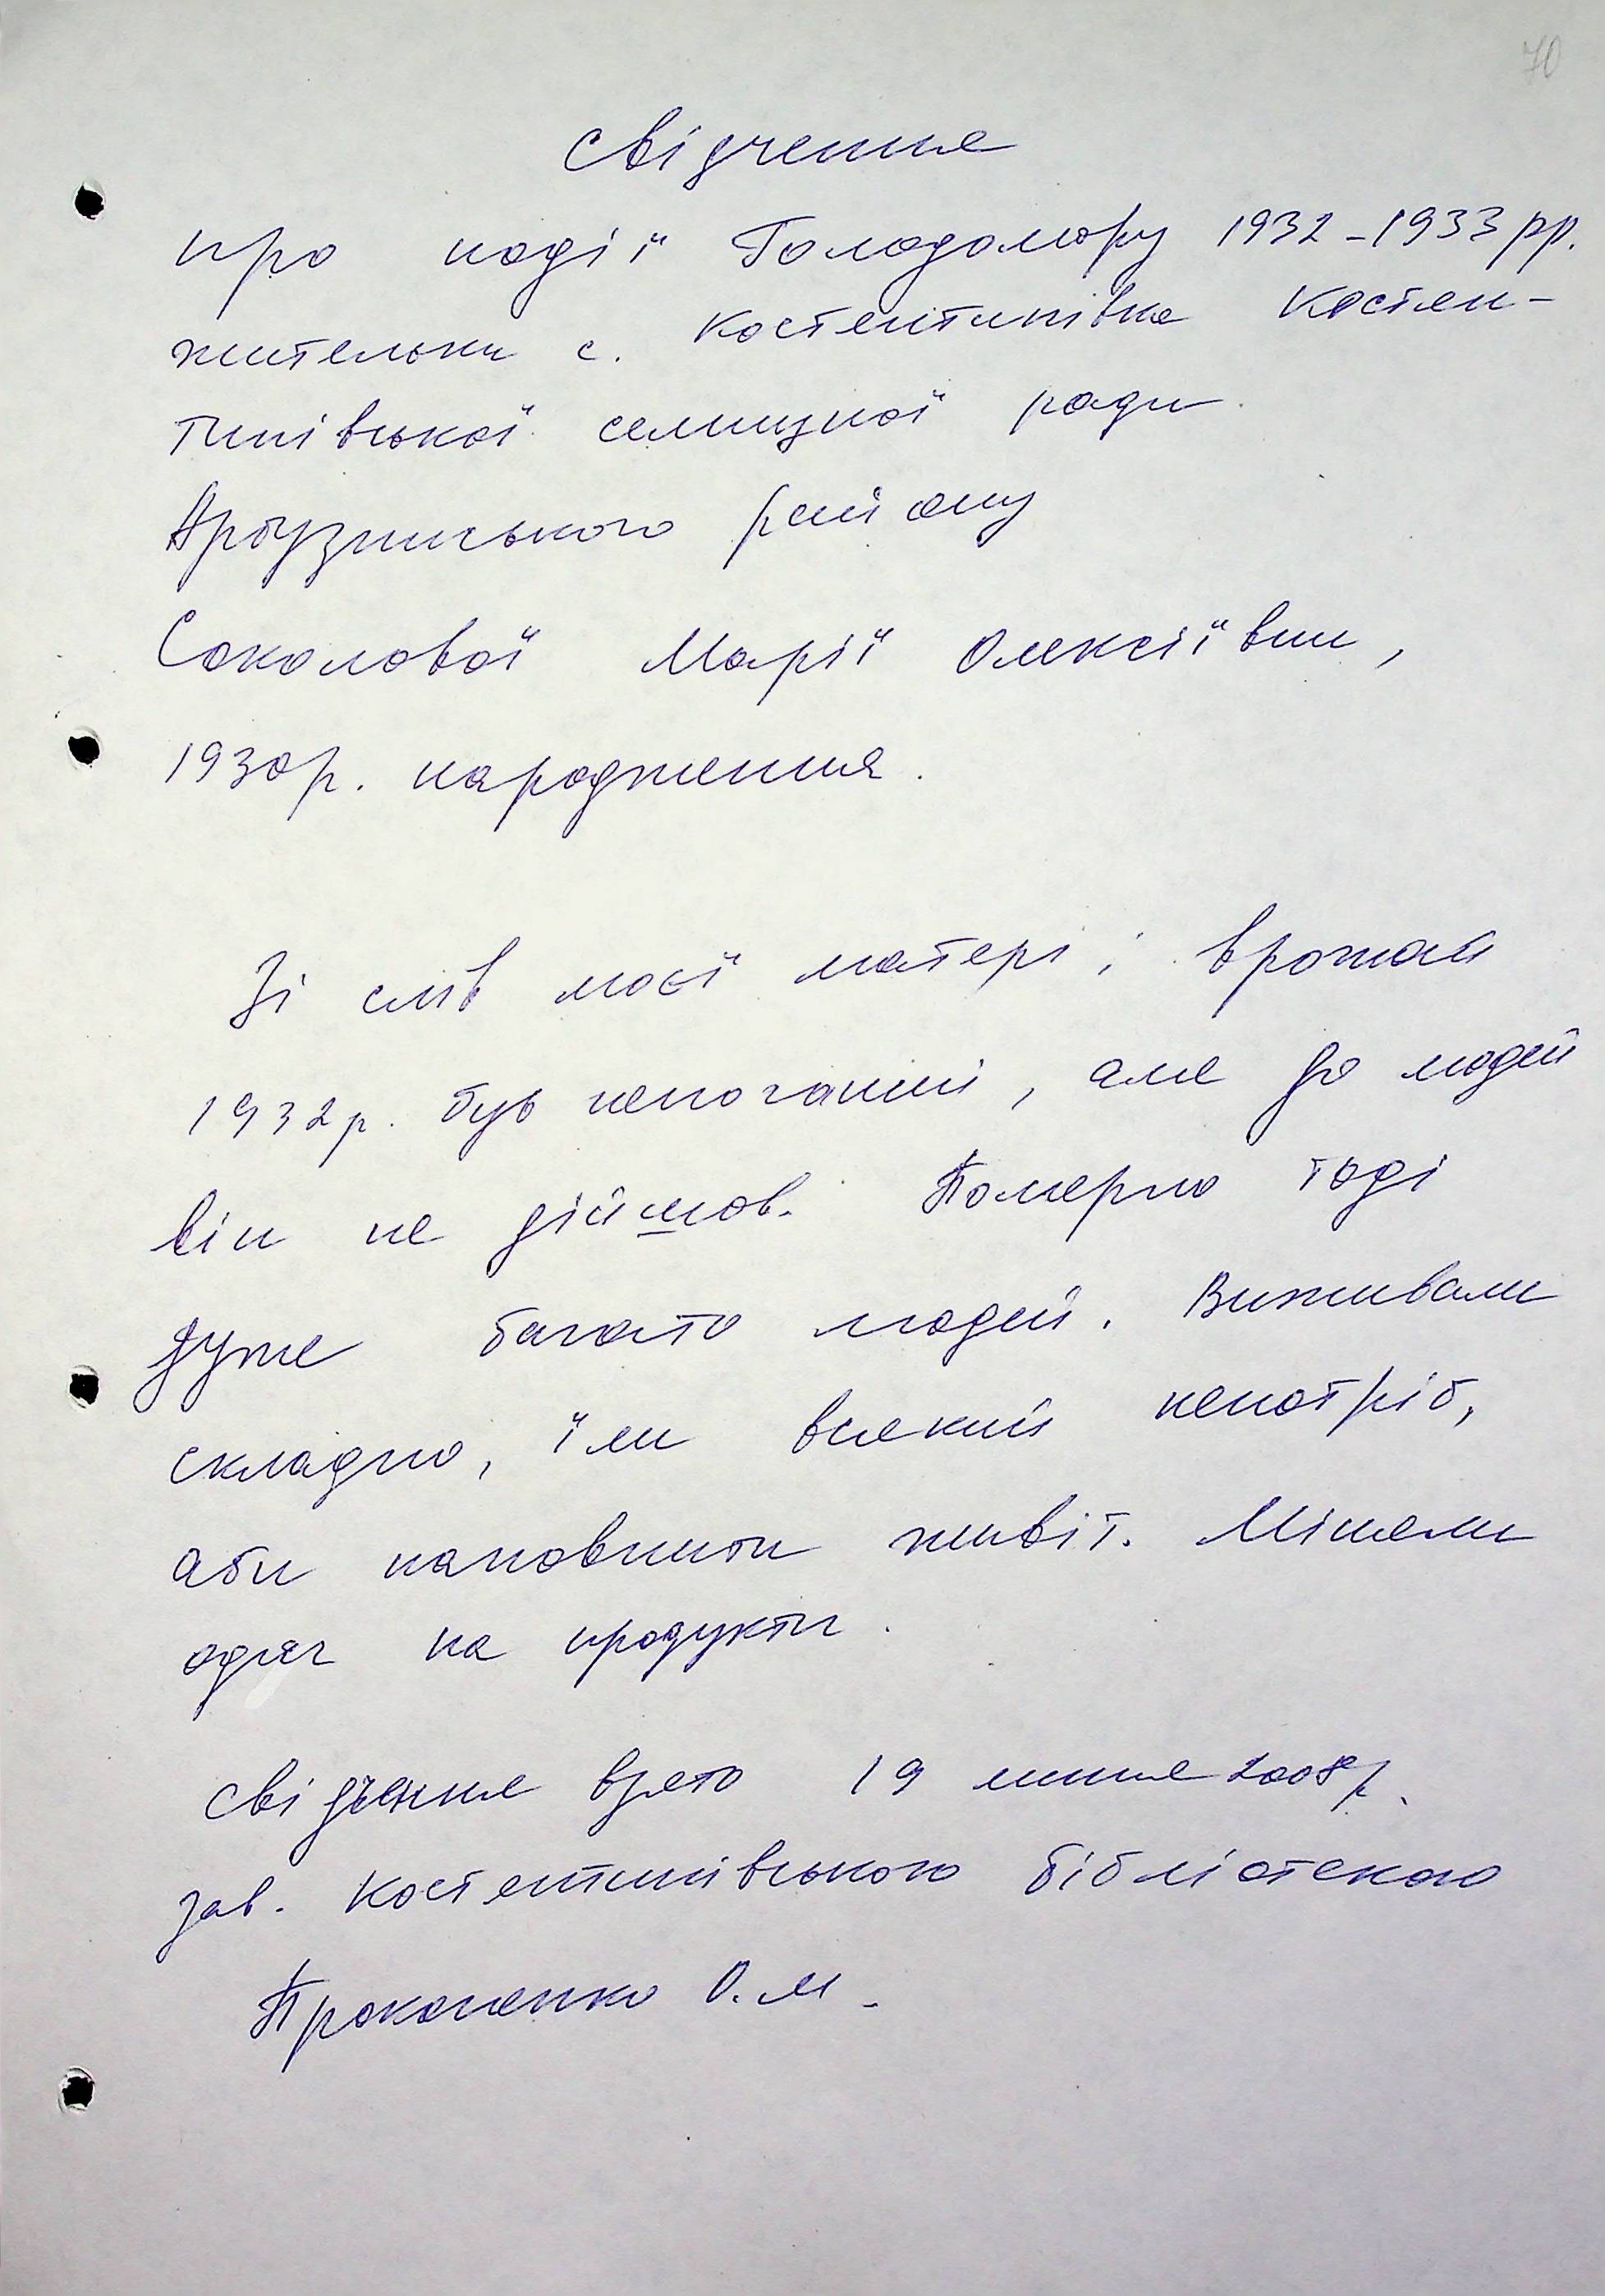 70
Свідчення
про події Голодомору 1932-1933 рр.
жительки с. Костянтинівка Костян-
тинівської селищної ради
Арбузинського району
Соколової Марії Олексіївни,
1930р. народження.
Зі слів моєї матері, врожай
1932р. був непоганий, але до людей
він не дійшов. Померло тоді
дуже багато людей. Виживали
складно, їли всякий непотріб,
аби наповнити живіт. Міняли
одяг на продукти.
Свідчення взято 19 липня 2008р.
зав. Костянтинівською бібліотекою
Прокопенко О.М.